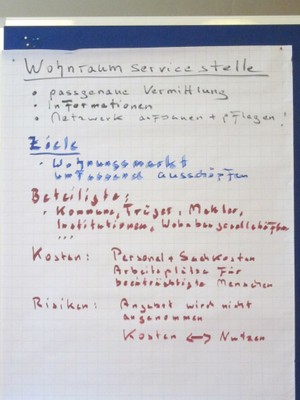 Wohnraumservicestelle
• passgenaue Vermittlung
• Informationen
• Netzwerk aufbauen + pflegen!
Ziele
• Wohnungsmarkt
umfassend ausschöpfen
Beteiligte:
• Kommune, Träger, Makler,
Institutionen, Wohnbaugesellschaften
...
Kosten: Personal + Sachkosten
Arbeitsplätze für
beeinträchtigte Menschen
Risiken: Angebot wird nicht
angenommen
Kosten <-> Nutzen